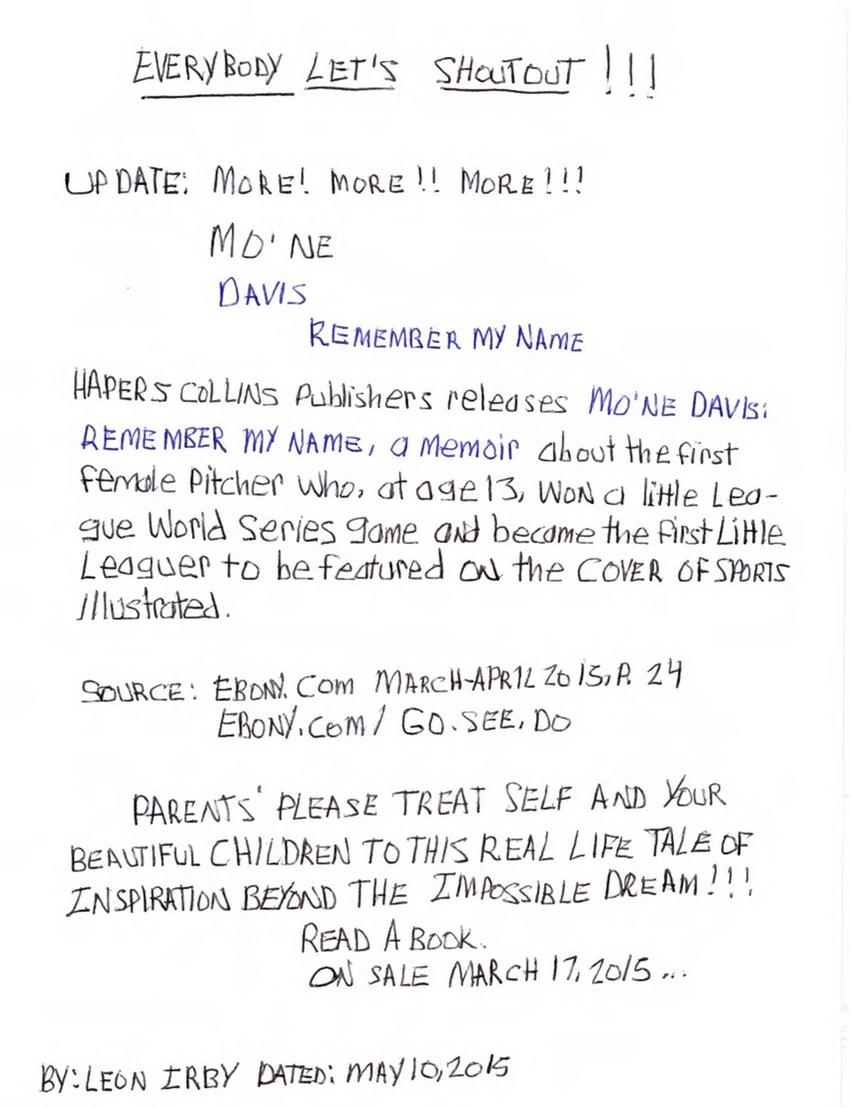 EVERYBODY LET'S SHOUTOUT !!!
UPDATE: MORE! MORE!! MORE!!!
MO'NE
DAVIS
REMEMBER MY NAME
HAPERS COLLINS Publishers releases MO'NE DAVIS:
REMEMBER MY NAME, a memoir about the first
female Pitcher who, at age 13, WON a little Lea-
gue World Series game and became the first Little
Leaguer to be featured on the COVER OF SPORTS
Illustrated.
SOURCE: EBONY.COM MARCH-APRIL 2015, P. 24
EBONY.COM/ GO.SEE.DO
PARENTS' PLEASE TREAT SELF AND YOUR
BEAUTIFUL CHILDREN TO THIS REAL LIFE TALE OF
INSPIRATION BEYOND THE IMPOSSIBLE DREAM!!!
READ A BOOK.
ON SALE MARCH 17, 2015 ...
BY: LEON IRBY DATED: MAY 10, 2015